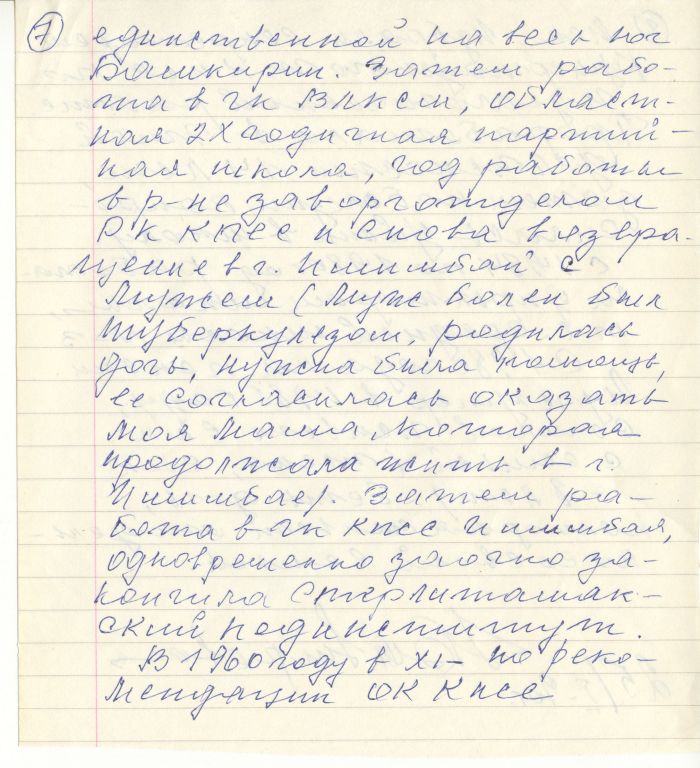 7 единственной на весь юг
Башкирии. Затем рабо-
та в гк ВЛКСМ, област-
ная 2х годичная партий-
ная школа, год работы
в р-не заворготделом
РК КПСС и снова возвра-
щение в г. Ишимбай с
мужем (муж болен был
туберкулезом, родилась
дочь, нужна была помощь,
ее согласилась оказать
моя мама, которая
продолжала жить в г.
Ишимбае). Затем ра-
бота в гк КПСС Ишимбая,
одновременно заочно за-
кончила Стерлитамак-
ский пединститут.
В 1960 году в XI- по реко-
мендации ОК КПСС